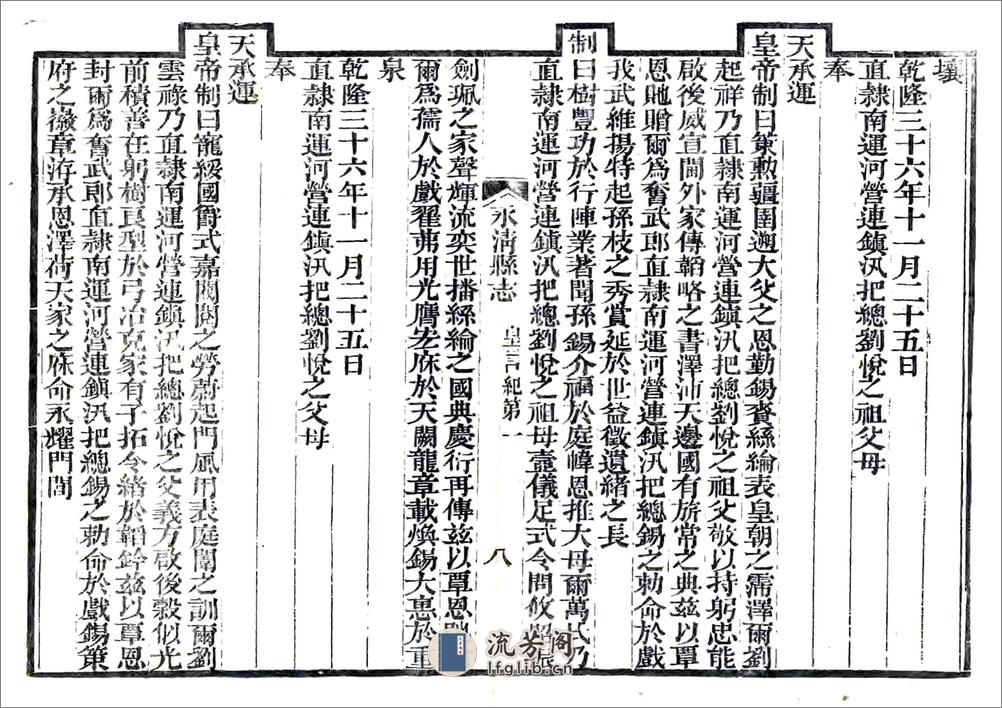 壤
乾隆三十六年十一月二十五日
直隸南運河營連鎮汛把總劉悅之祖父母
奉
天承運
皇帝制曰策勲疆圉遡大父之恩勤錫賚絲綸表皇朝之霈澤爾劉
起祥乃直隸南運河營連鎮汛把總劉悅之祖父敬以持躬忠能
啟後威宣閫外家傳韜略之書澤沛天邊國有旂常之典兹以覃
恩貤贈爾爲奮武郎直隸南運河營連鎮汛把總錫之勅命於戲
我武維揚特起孫枝之秀賞延於世益徵遺緒之長
制曰樹豐功於行陣業著聞孫錫介福於庭幃恩推大母爾萬氏乃
直隸南運河營連鎮汛把總劉悅之祖母壼儀足式令問攸
永淸縣志 皇言紀第一 八
劍珮之家聲輝流奕世播絲綸之國典慶衍再傳兹以覃恩
爾爲孺人於戲翟茀用光膺庥於天闕龍章載煥錫大惠於重
泉
乾隆三十六年十一月二十五日
直隸南運河營連鎮汛把總劉悅之父母
奉
天承運
皇帝制曰寵綏國爵式嘉閥閱之勞蔚起門風用表庭闈之訓爾劉
雲祿乃直隸南運河營連鎮汛把總劉悅之父義方啟後穀似光
前積善在躬樹良型於弓冶克家有子拓令緒於韜鈐兹以覃恩
封爾爲奮武郎直隸南運河營連鎮汛把總錫之勅命於戲錫策
府之徽章洊承恩澤荷天家之庥命永耀門閭
流芳阁
lfglib.cn